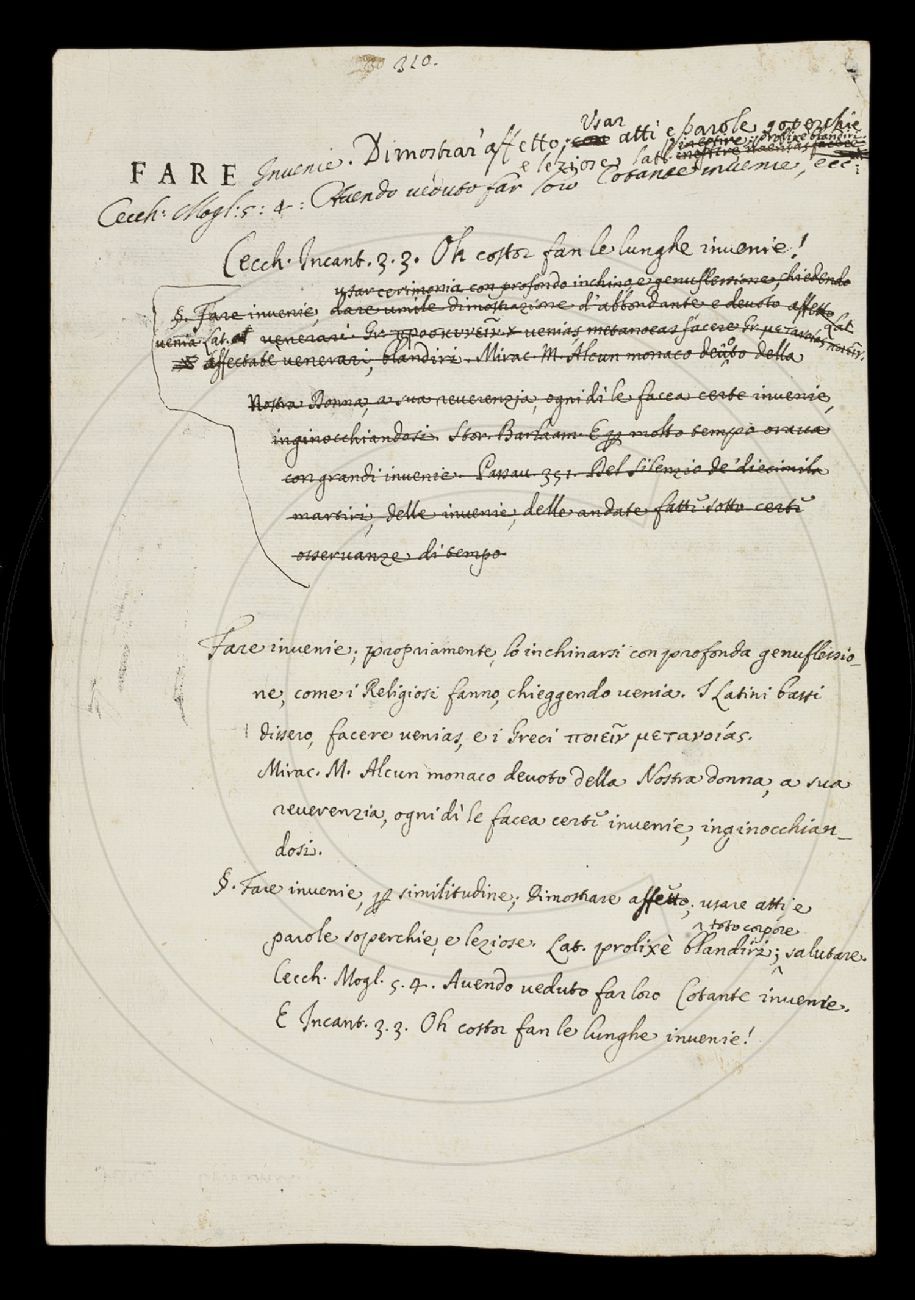 320.
FARE Invenie. Dimostrar affetto; Usar atti e parole soverchie
e leziose, lat. prolixe blandiri
Cecch: Mogl: 5: 4: Avendo veduto far loro Cotante invenie, ecc:
Cecch. Incant. 3. 3. Oh costor fan le lunghe invenie!
usar cerimonia con profondo inchino e genuflessione, chiedendo
§. Fare invenie, dare umile dimostrazione d'abbondante e devoto affetto Lat.
venia Lat. venerari Gr. προσκυνεῖν venias, metanoeas facere Gr. μετανοίας ποιεῖν.
affectate venerari, blandiri. Mirac. M. Alcun monaco devoto della
Nostra Donna, a sua reverenzia, ogni dì le facea certe invenie,
inginocchiandosi. Stor. Barlaam. E ꝑ molto tempo orava
con grandi invenie. Passav. 351. Del silenzio de' diecimila
martiri, delle invenie, delle andate fatte sotto certe
osservanze di tempo
Fare invenie; propriamente, lo inchinarsi con profonda genuflessio_
ne, come i Religiosi fanno, chieggendo venia. I Latini bassi
dissero, facere venias, e i Greci ποιεῖν μετανοίας.
Mirac. M. Alcun monaco devoto della Nostra donna, a sua
reverenzia, ogni dì le facea certe invenie, inginocchian_
dosi.
§. Fare invenie, ꝑ similitudine; Dimostrare affetto; usare atti, e
toto corpore
parole soperchie, e leziose. Lat. prolixè blandiri; salutare.
Cecch. Mogl. 5. 4. Avendo veduto far loro Cotante invenie.
E Incant. 3. 3. Oh costor fan le lunghe invenie!